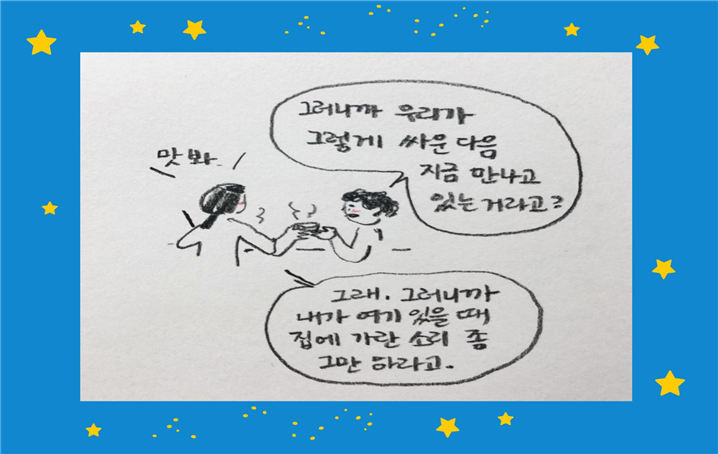 그러니까 우리가
그렇게 싸운 다음
지금 만나고
있는 거라고?
맛 봐.
그래. 그러니까
내가 여기 있을 때
집에 가란 소리 좀
그만 하라고.